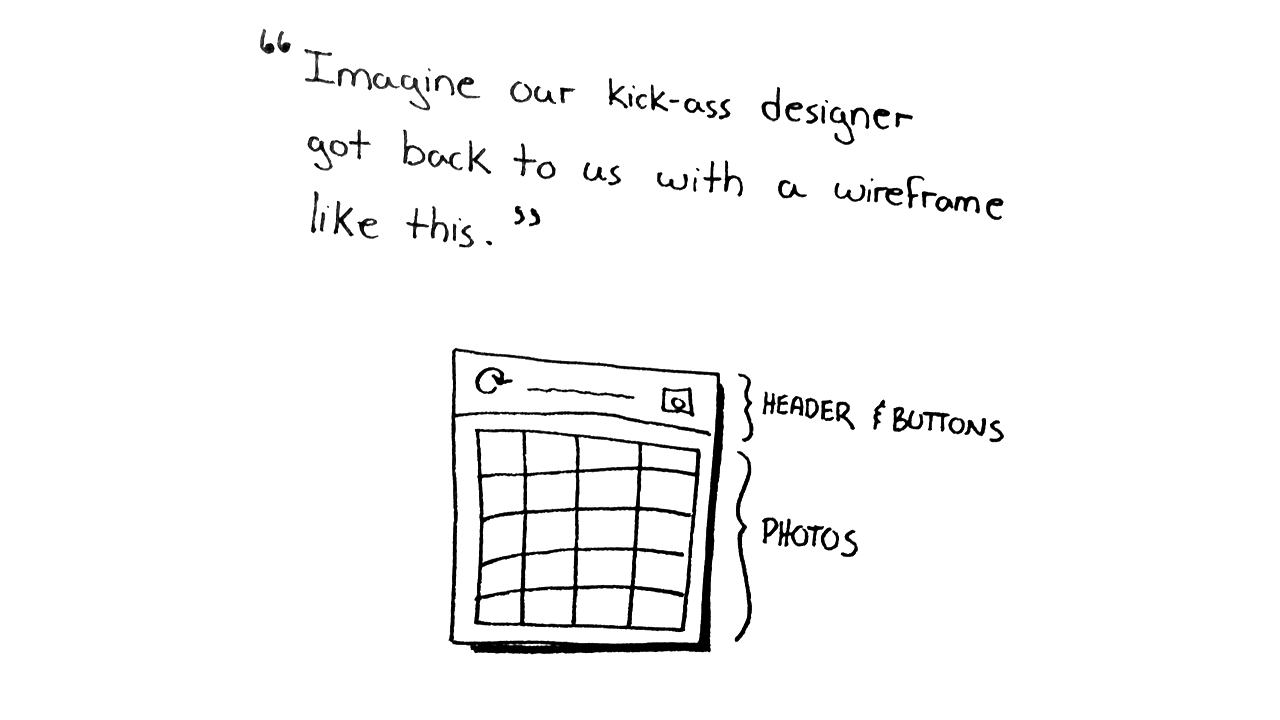 “Imagine our kick-ass designer
got back to us with a wireframe
like this.”
HEADER & BUTTONS
PHOTOS